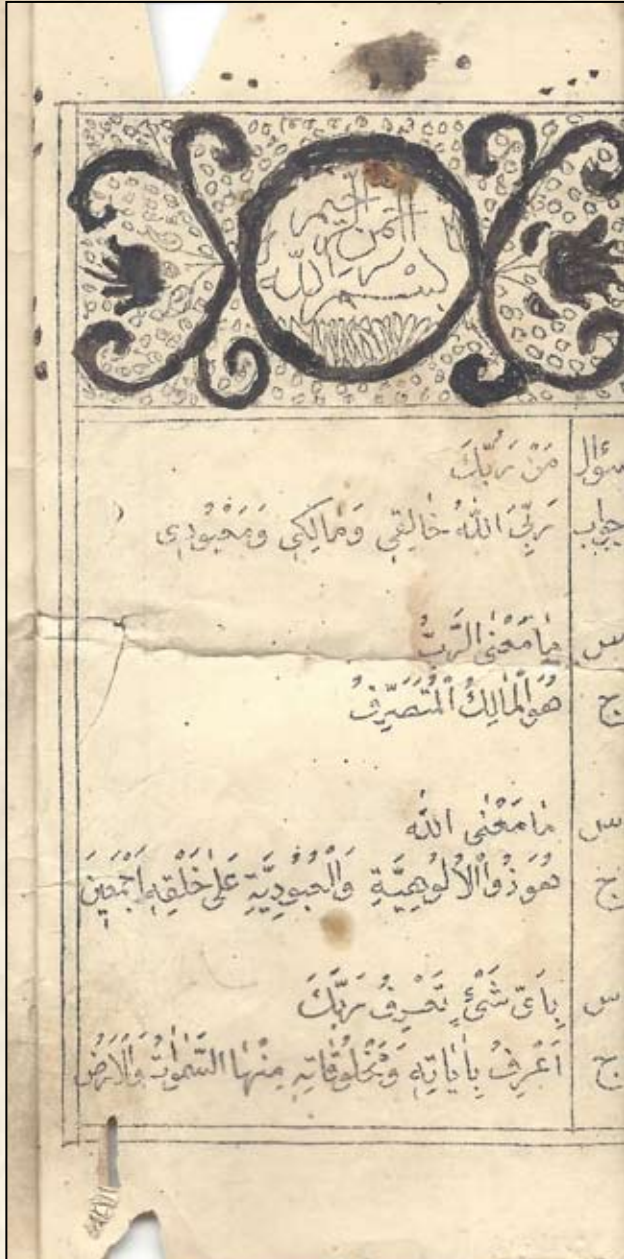 بسم الله الرحمن الرحيم
سؤال مَنْ رَبُّكَ
جواب رَبِّىَ اللّٰهُ خَالِقِي وَمَالِكِي وَمَعْبُودِى
س مَا مَعْنَى الرَّبُّ
ج هُوَ الْمَالِكُ الْمُتَصَرِّفُ
س مَا مَعْنَى اللّٰه
ج هُوَ ذُواْلاُلُوهِيَّةِ وَالْعُبُودِيَّةِ عَلٰى خَلْقِهِ اَجْمَعِينَ
س بِاَىِّ شَىْءٍ تَعْرِفُ رَبَّكَ
ج اَعْرِفُ بِاٰيَاتِهِ وَمَخْلُوقَاتِهِ مِنْهَا السَّمٰوَاتُ وَالْاَرْضُ